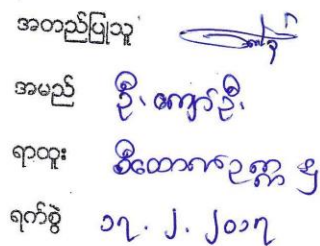 အတည်ပြုသူ
အမည် ဦး ကျော်ဦး
ရာထူး စီထောက်ဥက္ကဋ္ဌ
ရက်စွဲ ၁၇.၂.၂၀၁၇